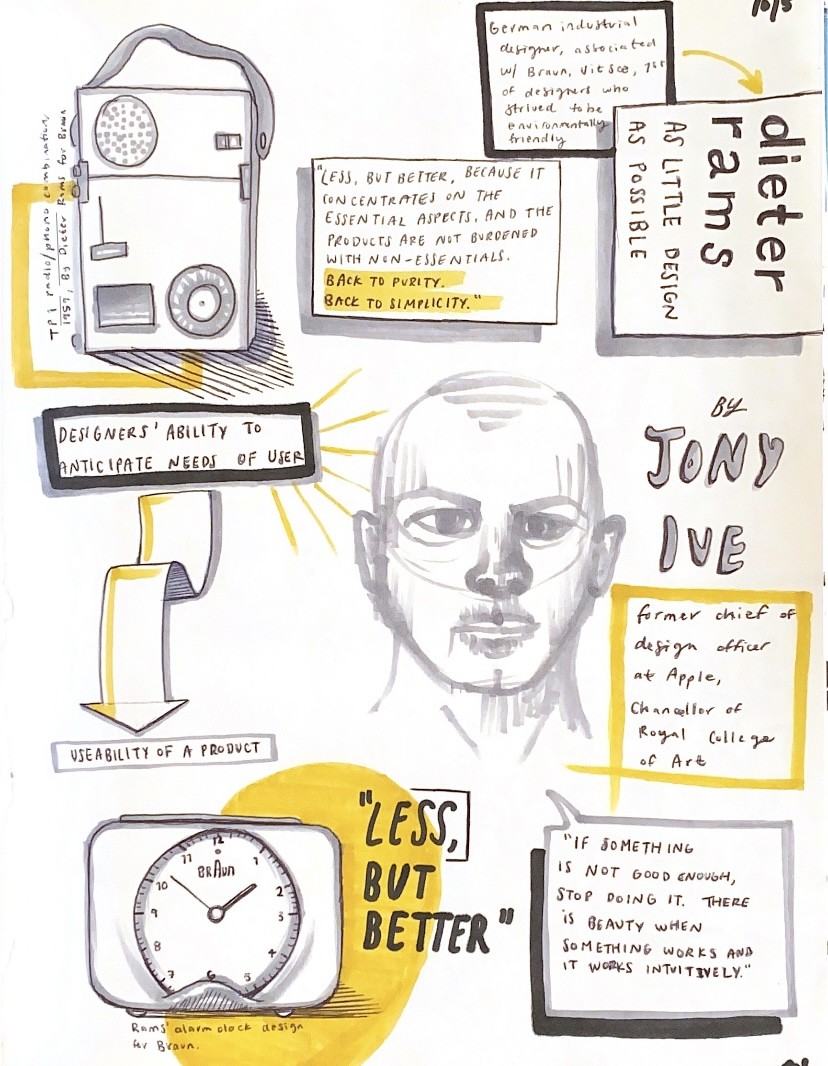 10/5
German industrial
designer, associated
w/ Braun, Vitsœ, 1st
of designers who
strived to be
environmentally
friendly
dieter
rams
AS LITTLE DESIGN
AS POSSIBLE
TP1 radio/phono combination,
1959, By Dieter Rams for Braun
"LESS, BUT BETTER, BECAUSE IT
CONCENTRATES ON THE
ESSENTIAL ASPECTS, AND THE
PRODUCTS ARE NOT BURDENED
WITH NON-ESSENTIALS.
BACK TO PURITY.
BACK TO SIMPLICITY."
DESIGNERS' ABILITY TO
ANTICIPATE NEEDS OF USER
USEABILITY OF A PRODUCT
BY
JONY
IVE
former chief of
design officer
at Apple,
Chancellor of
Royal College
of Art
12
11
1
BRAUN
10
2
9
3
8
4
7
6
5
Rams' alarm clock design
for Braun.
"LESS,
BUT
BETTER"
"IF SOMETHING
IS NOT GOOD ENOUGH,
STOP DOING IT. THERE
IS BEAUTY WHEN
SOMETHING WORKS AND
IT WORKS INTUITIVELY."